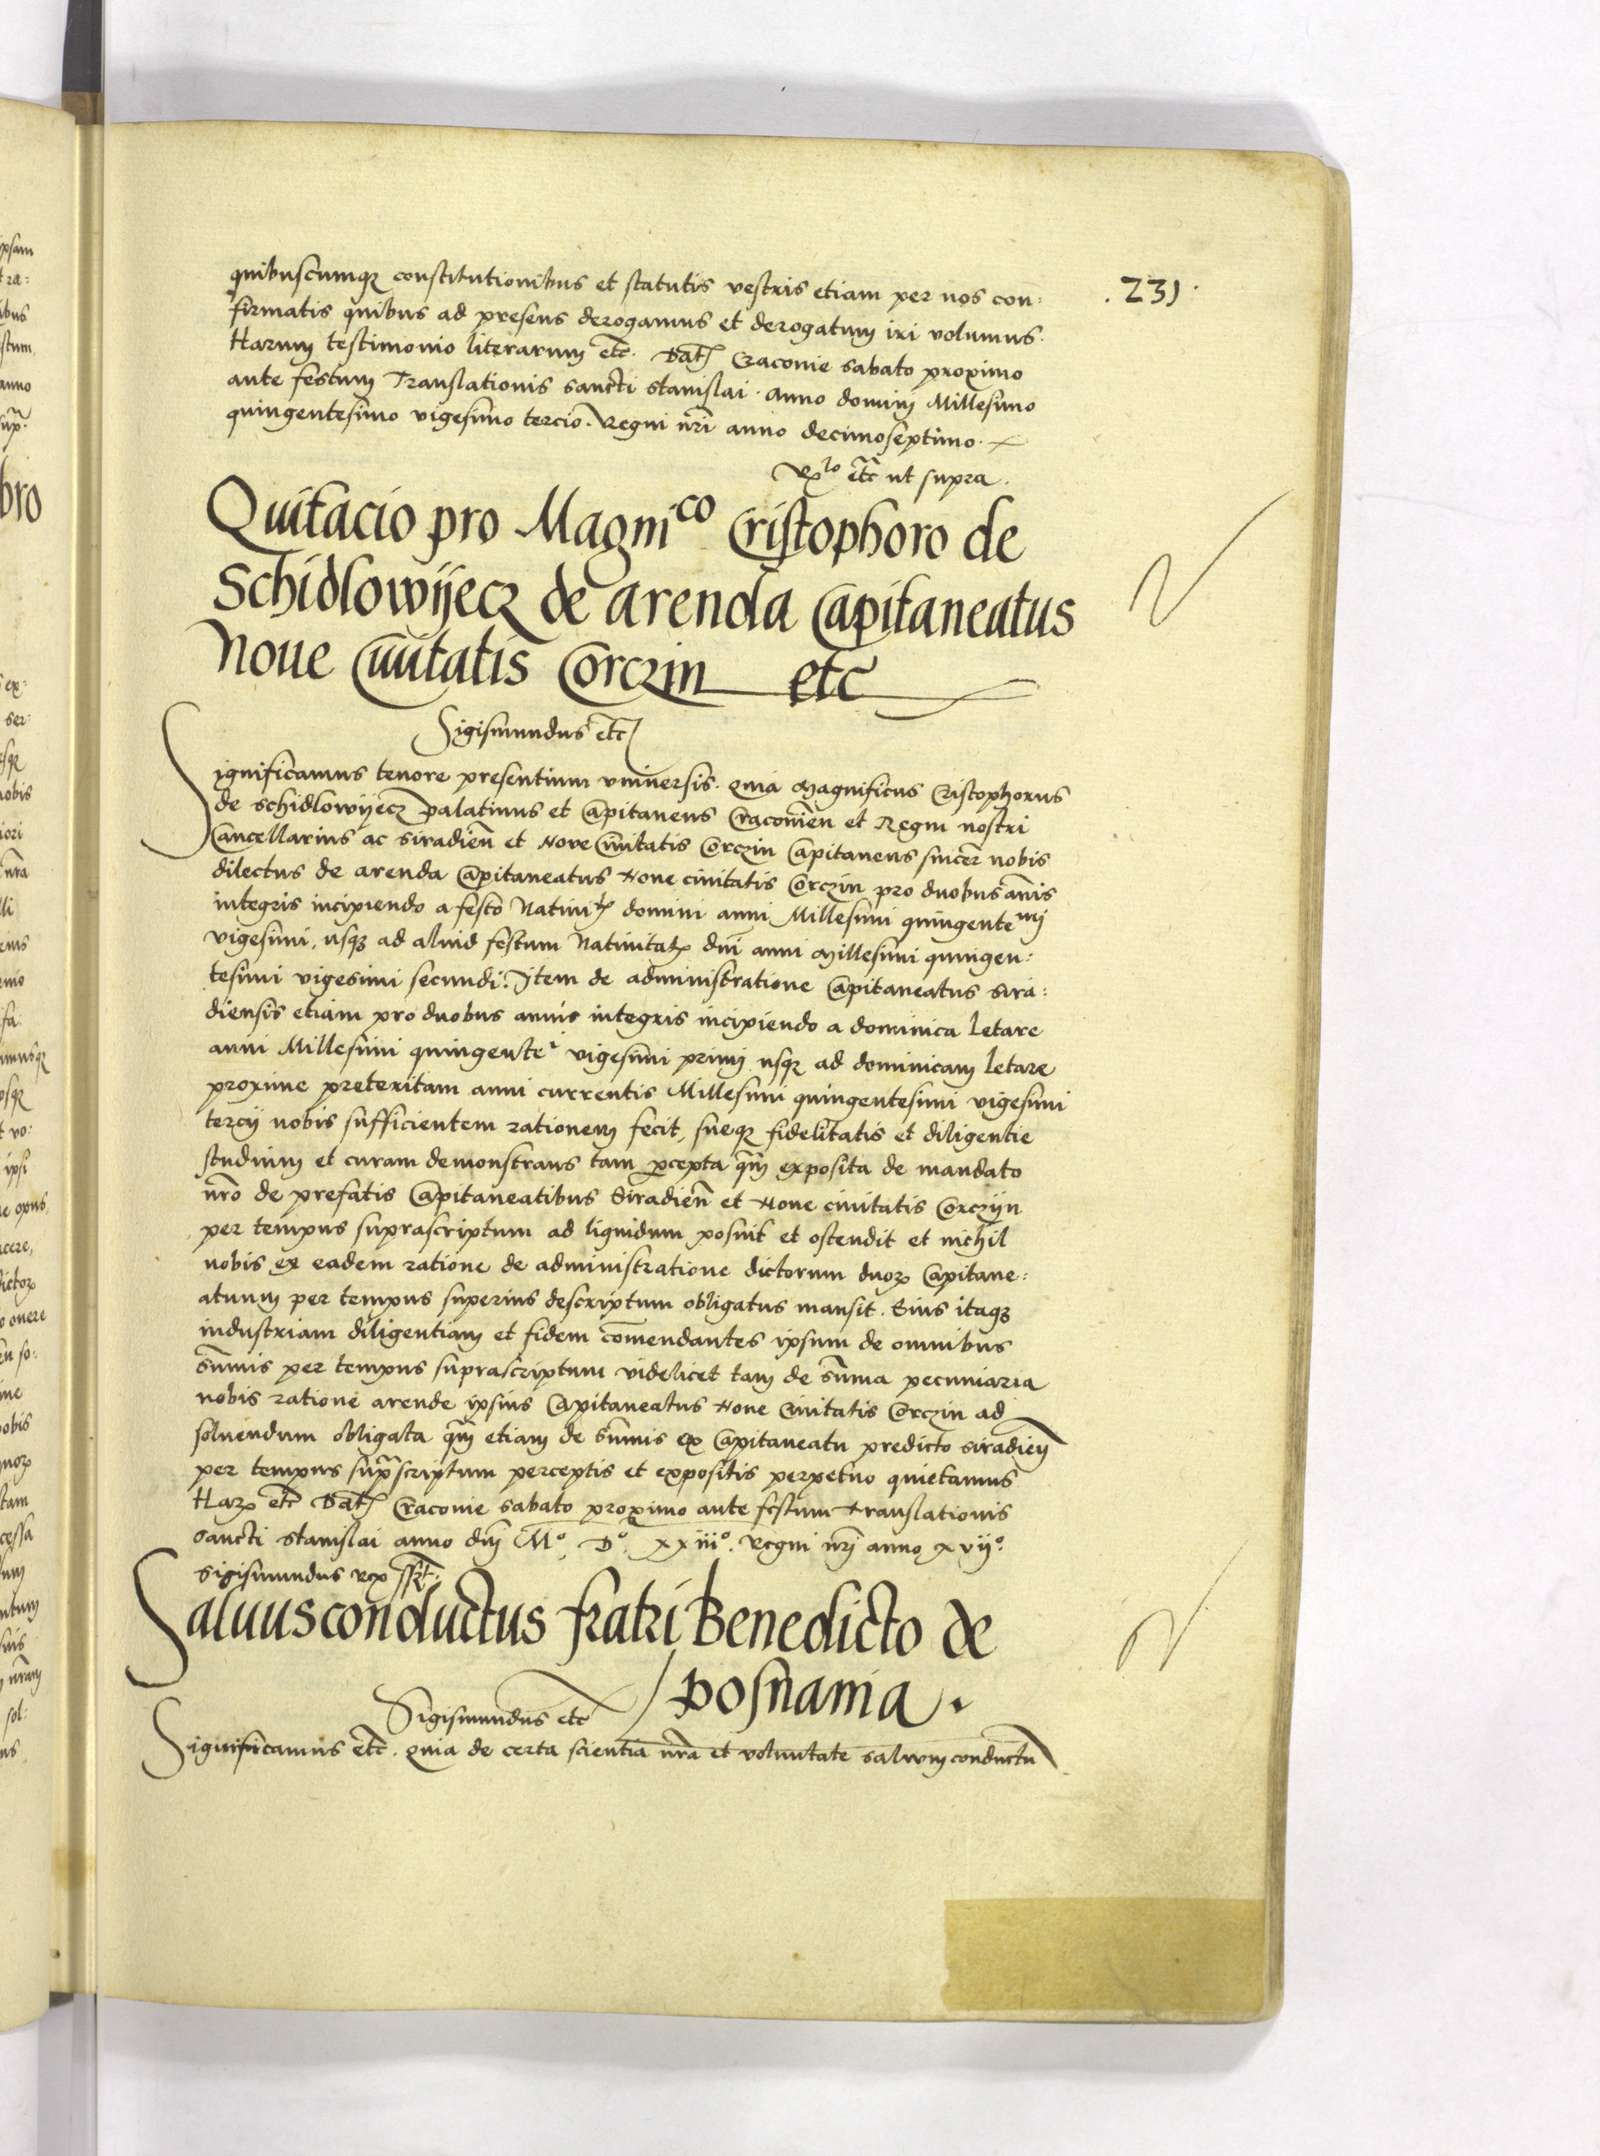 .231.
quibuscumqz constitutionibus et statutis vestris etiam per nos con:
firmatis quibus ad presens derogamus et derogatum iri volumus.
Harum testimonio literarum etc. Dat Cracovie sabato proximo
ante festum Translationis sancti stanislai. Anno domini Millesimo
quingentesimo vigesimo tercio. Regni nri anno decimoseptimo.
etc ut supra.
Quitacio pro Magnico Cristophoro de
Schidlowijecz de arenda Capitaneatus
Noue Ciuitatis Corczin etc
Sigismundus etc
Significamus tenore presentium vniuersis. Quia Magnificus Cristophorus
de Schidlowijecz palatinus et Capitaneus Cracovien et Regni nostri
Cancellarius ac Siradien et Nove Ciuitatis Corczin Capitaneus sincer nobis
dilectus de arenda Capitaneatus Noue ciuitatis Corczin pro duobus annis
integris incipiendo a festo Natiuit domini anni Millesimi quingentemi
vigesimi, usqz ad aliud festum Natiuitat dni anni Millesimi quingen:
tesimi vigesimi secundi: Item de administratione Capitaneatus Sira:
diensis etiam pro duobus annis integris incipiendo a dominica letare
anni Millesimi quingentei vigesimi primi usqz ad dominicam letare
proxime preteritam anni currentis Millesimi quingentesimi vigesimi
tercij nobis sufficientem rationem fecit, sueqz fidelitatis et diligentie
studium et curam demonstrans tam pcepta qm exposita de mandato
nro de prefatis Capitaneatibus Siradien et Noue ciuitatis Corczijn
per tempus suprascriptum ad liquidum posuit et ostendit et nichil
nobis ex eadem ratione de administratione dictorum duor Capitane:
atuum per tempus superius descriptum obligatus mansit. Eius itaqz
industriam diligentiam et fidem comendantes ipsum de omnibus
sumis per tempus suprascriptum videlicet tam de suma pecuniaria
nobis ratione arende ipsius Capitaneatus Noue Ciuitatis Corczin ad
soluendum obligata qm etiam de sumis ex Capitaneatu predicto Siradien
per tempus suprscriptum perceptis et expositis perpetuo quietamus
Har etc Dat Cracovie sabato proximo ante festum Translationis
Sancti Stanislai anno dni Mo. Do. xxiiio. Regni nri anno xvijo.
Sigismundus rex sspt:
Saluusconductus fratri Benedicto de
Posnania.
Sigismundus etc
Significamus etc. Quia de certa scientia nra et voluntate saluumconductu